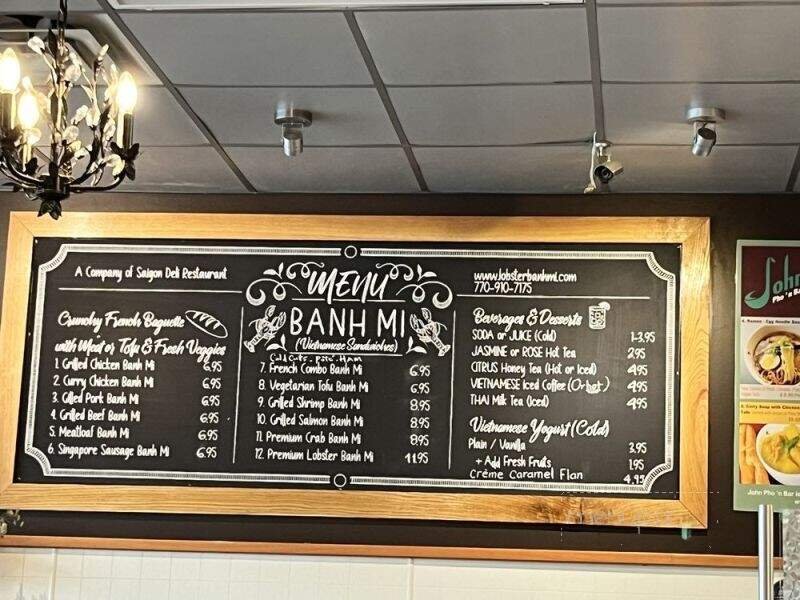 A Company of Saigon Deli Restaurant
MENU
BANH MI
(Vietnamese Sandwiches)
www.lobsterbanhmi.com
770-910-7175
Crunchy French Baguette
with Meat or Tofu & Fresh Veggies
1. Grilled Chicken Banh Mi 6.95
2. Curry Chicken Banh Mi 6.95
3. Gilled Pork Banh Mi 6.95
4. Grilled Beef Banh Mi 6.95
5. Meatloaf Banh Mi 6.95
6. Singapore Sausage Banh Mi 6.95
Cold Cuts, pate, Ham
7. French Combo Banh Mi 6.95
8. Vegetarian Tofu Banh Mi 6.95
9. Grilled Shrimp Banh Mi 8.95
10. Grilled Salmon Banh Mi 8.95
11. Premium Crab Banh Mi 8.95
12. Premium Lobster Banh Mi 11.95
Beverages & Desserts
SODA or JUICE (Cold) 1-3.95
JASMINE or ROSE Hot Tea 2.95
CITRUS Honey Tea (Hot or Iced) 4.95
VIETNAMESE Iced Coffee (Or hot) 4.95
THAI Milk Tea (Iced) 4.95
Vietnamese Yogurt (Cold)
Plain / Vanilla 3.95
+ Add Fresh Fruits 1.95
Crème Caramel Flan 4.95
John
Pho 'n Bar
John Pho 'n Bar